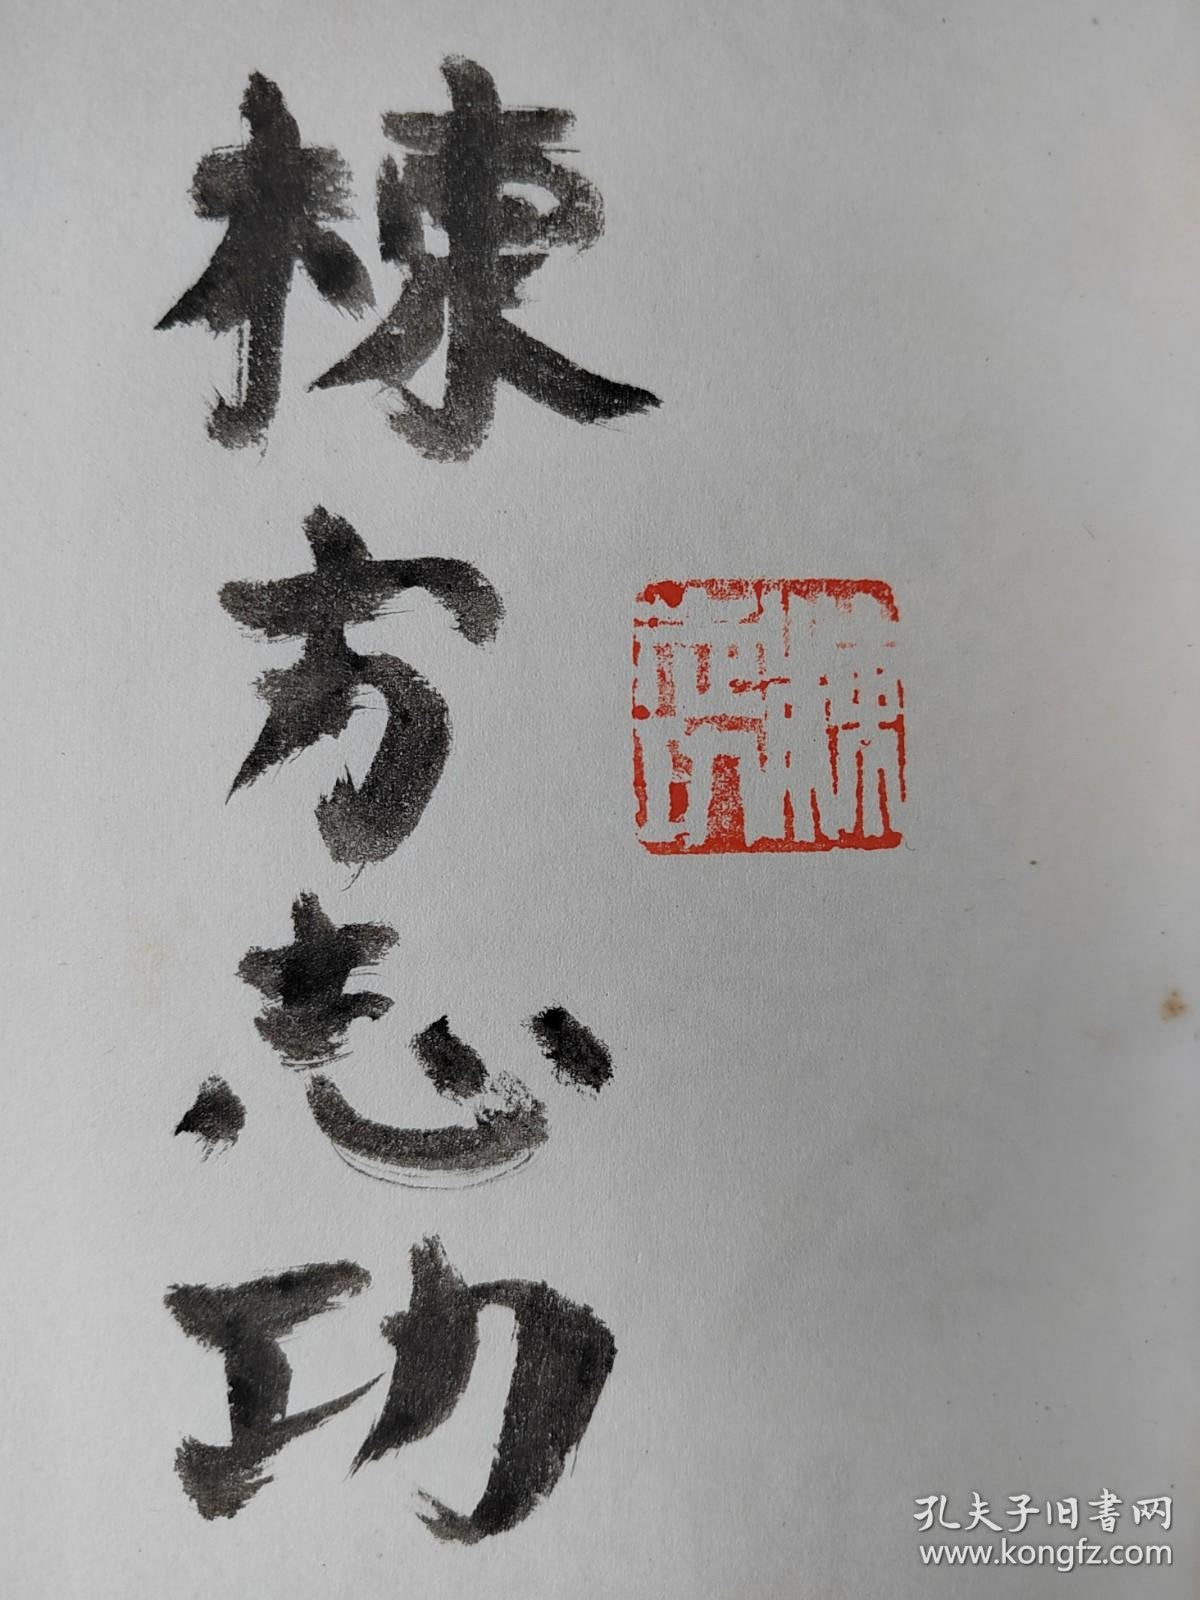 棟方志功
孔夫子旧書网
www.kongfz.com